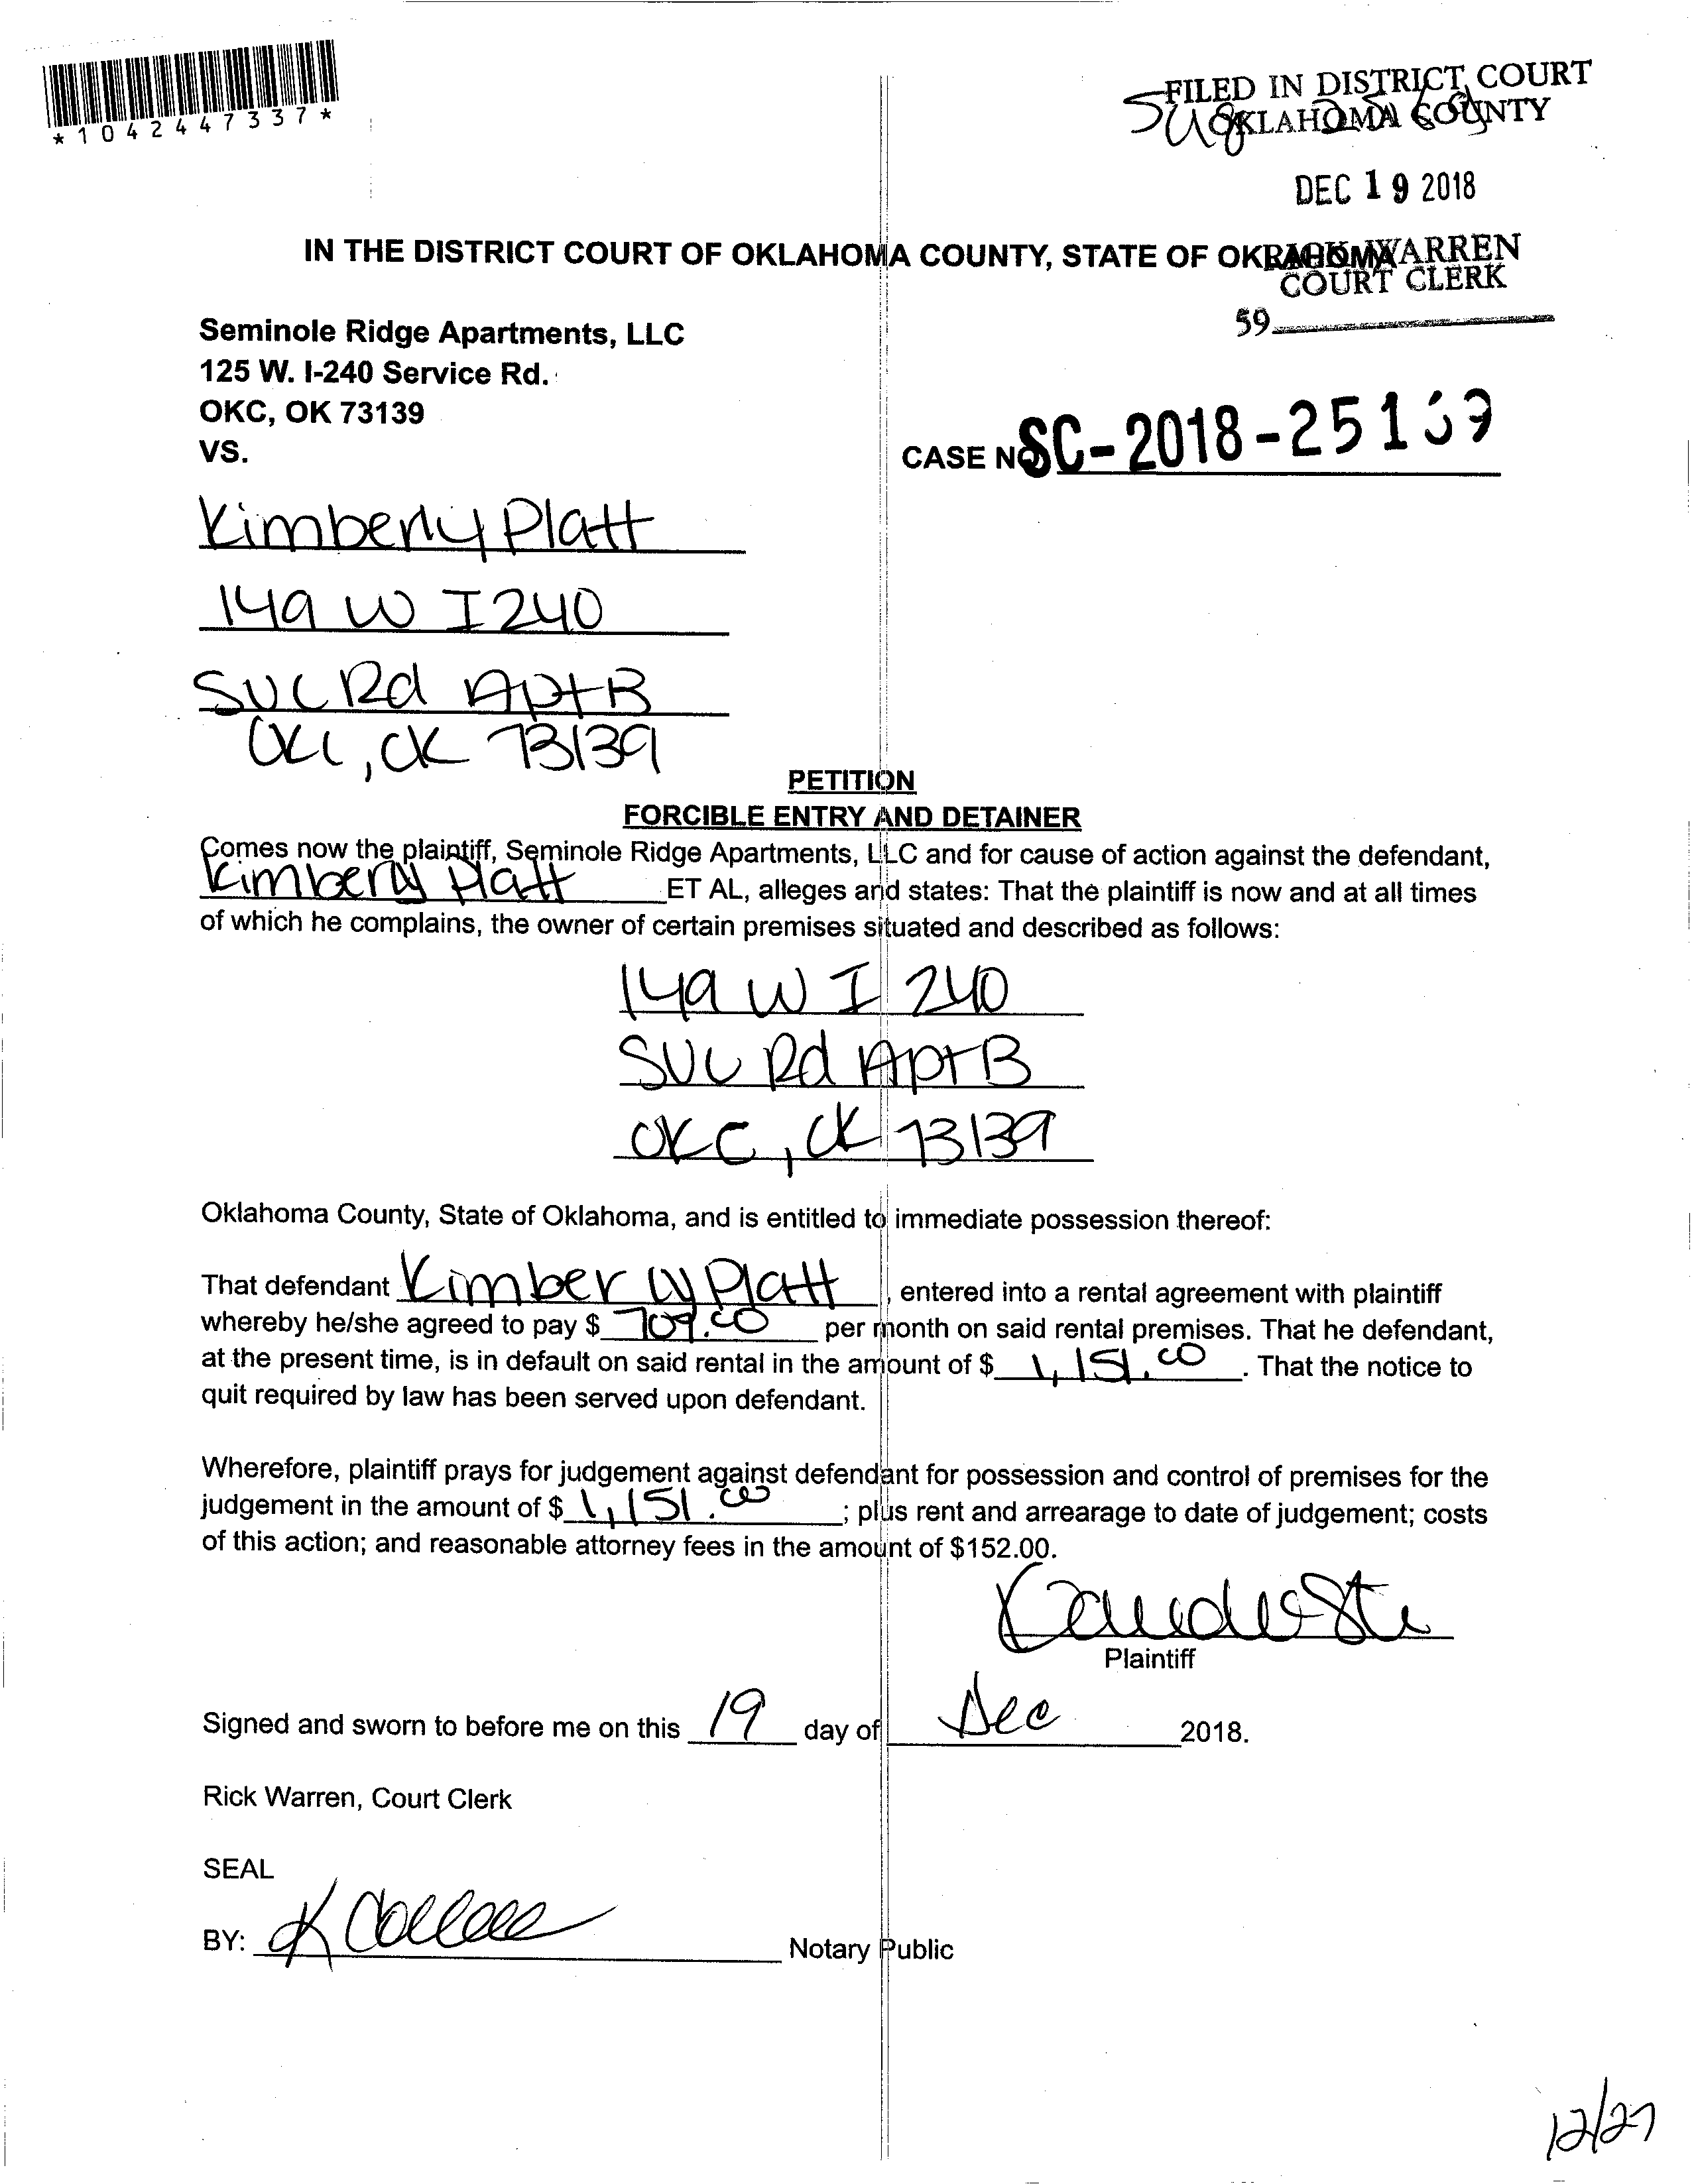 *1042447337*
FILED IN DISTRICT COURT
OKLAHOMA COUNTY
DEC 19 2018
IN THE DISTRICT COURT OF OKLAHOMA COUNTY, STATE OF OKLAHOMA
RICK WARREN
COURT CLERK
59
Seminole Ridge Apartments, LLC
125 W. I-240 Service Rd.
OKC, OK 73139
VS.
CASE NO SC-2018-251
Kimberly Platt
149 W I240
SVC Rd Apt B
OKC, OK 73139
PETITION
FORCIBLE ENTRY AND DETAINER
Comes now the plaintiff, Seminole Ridge Apartments, LLC and for cause of action against the defendant,
Kimberly Platt ET AL, alleges and states: That the plaintiff is now and at all times
of which he complains, the owner of certain premises situated and described as follows:
149 W I 240
SVC Rd Apt B
OKC, OK 73139
Oklahoma County, State of Oklahoma, and is entitled to immediate possession thereof:
That defendant Kimberly Platt, entered into a rental agreement with plaintiff
whereby he/she agreed to pay $ 709.00 per month on said rental premises. That he defendant,
at the present time, is in default on said rental in the amount of $ 1,151.00. That the notice to
quit required by law has been served upon defendant.
Wherefore, plaintiff prays for judgement against defendant for possession and control of premises for the
judgement in the amount of $ 1,151.00; plus rent and arrearage to date of judgement; costs
of this action; and reasonable attorney fees in the amount of $152.00.
Plaintiff
Signed and sworn to before me on this 19 day of Dec 2018.
Rick Warren, Court Clerk
SEAL
BY: Notary Public
12/27